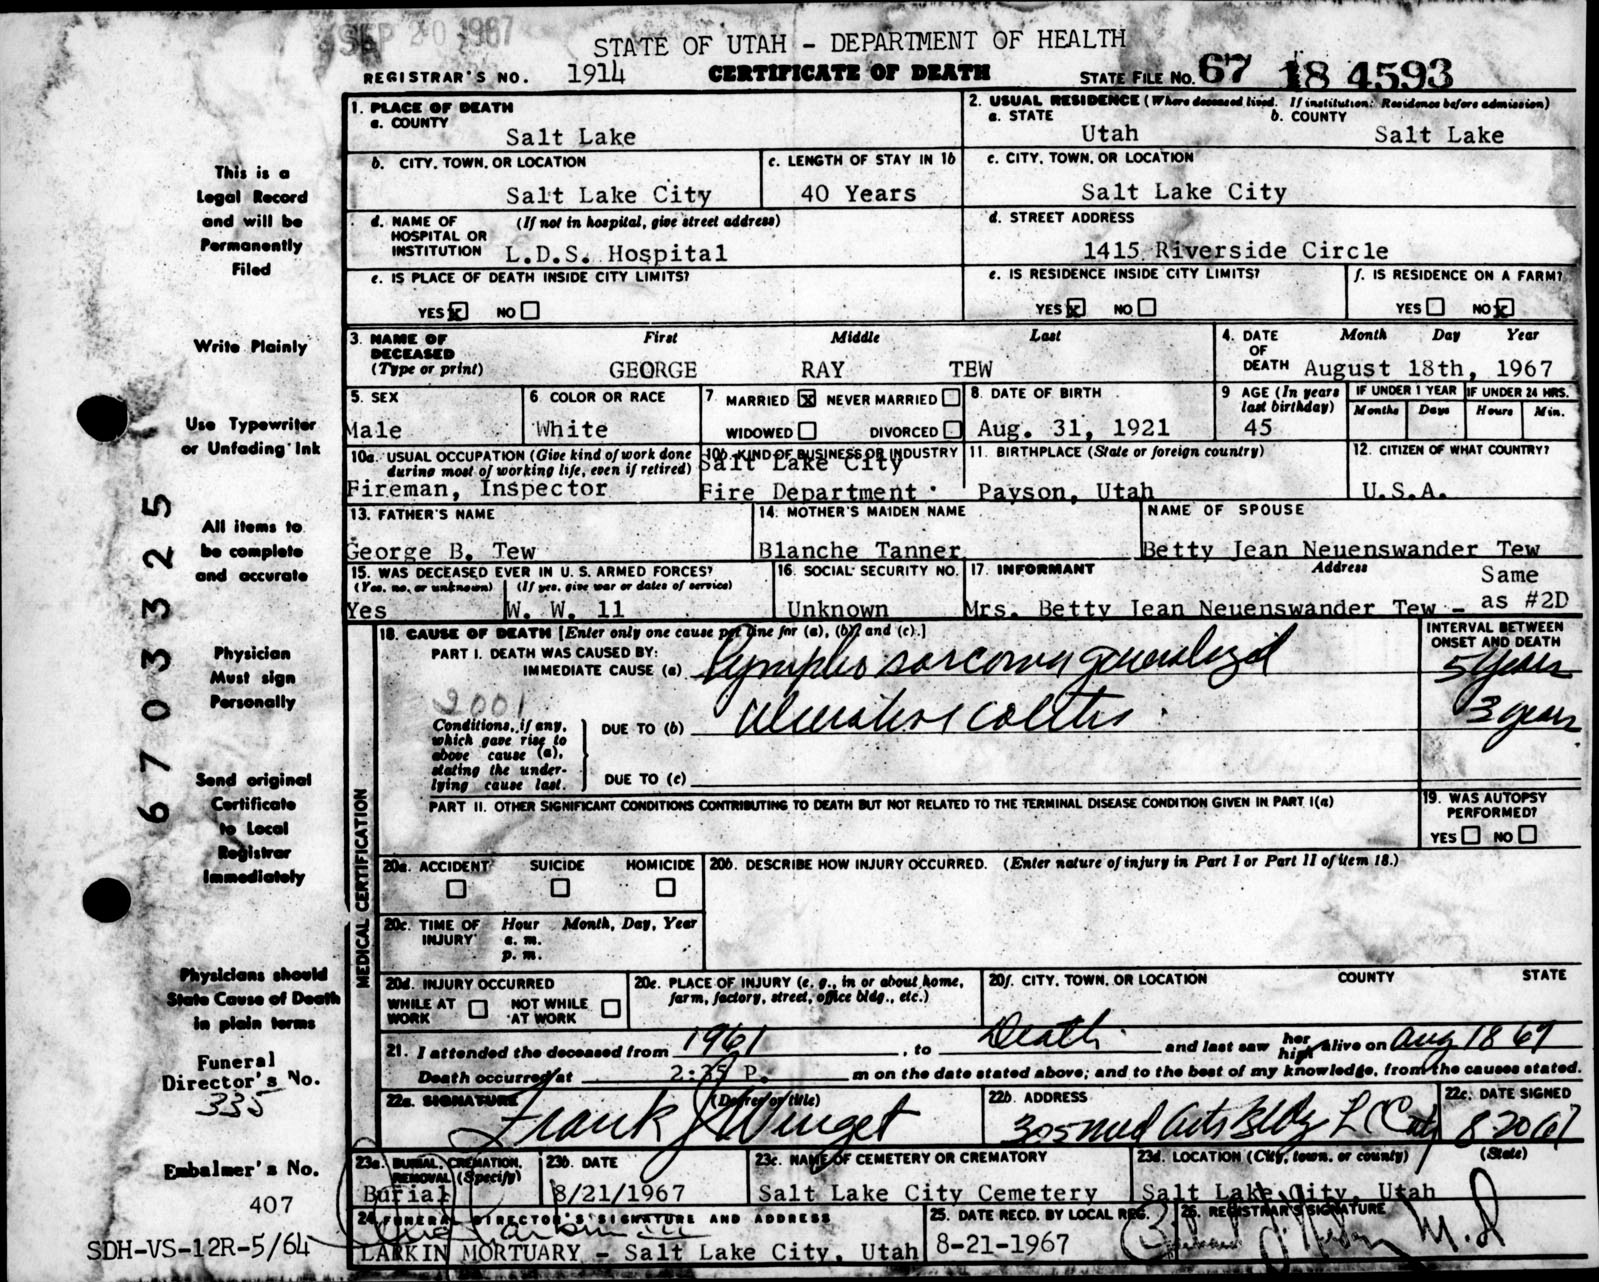 SEP 20 1967
STATE OF UTAH - DEPARTMENT OF HEALTH
REGISTRAR'S NO. 1914 CERTIFICATE OF DEATH STATE FILE NO. 67 18 4593
1. PLACE OF DEATH
a. COUNTY
Salt Lake
2. USUAL RESIDENCE (Where deceased lived. If institution: Residence before admission)
a. STATE b. COUNTY
Utah Salt Lake
b. CITY, TOWN, OR LOCATION
Salt Lake City
c. LENGTH OF STAY IN 1b
40 Years
c. CITY, TOWN, OR LOCATION
Salt Lake City
d. NAME OF (If not in hospital, give street address)
HOSPITAL OR
INSTITUTION L.D.S. Hospital
d. STREET ADDRESS
1415 Riverside Circle
e. IS PLACE OF DEATH INSIDE CITY LIMITS?
YES x NO
e. IS RESIDENCE INSIDE CITY LIMITS?
YES x NO
f. IS RESIDENCE ON A FARM?
YES NO x
3. NAME OF First Middle Last
DECEASED
(Type or print) GEORGE RAY TEW
4. DATE Month Day Year
OF
DEATH August 18th, 1967
5. SEX
Male
6. COLOR OR RACE
White
7. MARRIED x NEVER MARRIED
WIDOWED DIVORCED
8. DATE OF BIRTH
Aug. 31, 1921
9 AGE (In years
last birthday)
45
IF UNDER 1 YEAR IF UNDER 24 HRS.
Months Days Hours Min.
10a. USUAL OCCUPATION (Give kind of work done
during most of working life, even if retired)
Fireman, Inspector
10b. KIND OF BUSINESS OR INDUSTRY
Salt Lake City
Fire Department
11. BIRTHPLACE (State or foreign country)
Payson, Utah
12. CITIZEN OF WHAT COUNTRY?
U.S.A.
13. FATHER'S NAME
George B. Tew
14. MOTHER'S MAIDEN NAME
Blanche Tanner
NAME OF SPOUSE
Betty Jean Neuenswander Tew
15. WAS DECEASED EVER IN U. S. ARMED FORCES?
(Yes, no, or unknown) (If yes, give war or dates of service)
Yes W. W. 11
16. SOCIAL SECURITY NO.
Unknown
17. INFORMANT Address
Mrs. Betty Jean Neuenswander Tew - Same
as #2D
MEDICAL CERTIFICATION
18. CAUSE OF DEATH [Enter only one cause per line for (a), (b), and (c).]
PART I. DEATH WAS CAUSED BY:
IMMEDIATE CAUSE (a) Lympho sarcoma generalized
INTERVAL BETWEEN
ONSET AND DEATH
5 years
2001
Conditions, if any,
which gave rise to
above cause (a),
stating the under-
lying cause last.
DUE TO (b) Ulcerative colitis
3 years
DUE TO (c)
PART II. OTHER SIGNIFICANT CONDITIONS CONTRIBUTING TO DEATH BUT NOT RELATED TO THE TERMINAL DISEASE CONDITION GIVEN IN PART I(a)
19. WAS AUTOPSY
PERFORMED?
YES NO
20a. ACCIDENT SUICIDE HOMICIDE
20b. DESCRIBE HOW INJURY OCCURRED. (Enter nature of injury in Part I or Part II of item 18.)
20c. TIME OF Hour Month, Day, Year
INJURY a. m.
p. m.
20d. INJURY OCCURRED
WHILE AT NOT WHILE
WORK AT WORK
20e. PLACE OF INJURY (e. g., in or about home,
farm, factory, street, office bldg., etc.)
20f. CITY, TOWN, OR LOCATION COUNTY STATE
21. I attended the deceased from 1961, to Death and last saw her him alive on Aug 18 67
Death occurred at 2:35 P. m on the date stated above; and to the best of my knowledge, from the causes stated.
22a. SIGNATURE (Degree or title)
Frank J Winget
22b. ADDRESS
305 Med Arts Bldg
22c. DATE SIGNED
8 20 67
23a. BURIAL, CREMATION,
REMOVAL (Specify)
Burial
23b. DATE
8/21/1967
23c. NAME OF CEMETERY OR CREMATORY
Salt Lake City Cemetery
23d. LOCATION (City, town, or county) (State)
Salt Lake City, Utah
24. FUNERAL DIRECTOR'S SIGNATURE AND ADDRESS
LARKIN MORTUARY - Salt Lake City, Utah
25. DATE RECD. BY LOCAL REG.
8-21-1967
26. REGISTRAR'S SIGNATURE
M.D
This is a
Legal Record
and will be
Permanently
Filed
Write Plainly
Use Typewriter
or Unfading Ink
All items to
be complete
and accurate
Physician
Must sign
Personally
Send original
Certificate
to Local
Registrar
Immediately
Physicians should
State Cause of Death
in plain terms
Funeral
Director's No.
335
Embalmer's No.
407
SDH-VS-12R-5/64
6703325